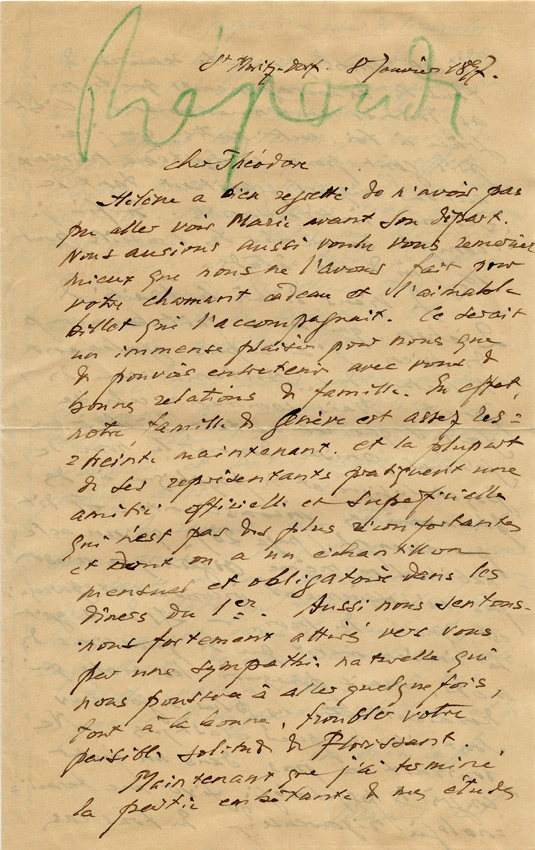 Répondu
St Moritz-Dorf. 8 Janvier 1897.
cher Théodore
Hélène a bien regretté de n'avoir pas
pu aller voir Marie avant son départ.
Nous aurions aussi voulu vous remercier
mieux que nous ne l'avons fait pour
votre charmant cadeau et l'aimable
billet qui l'accompagnait. Ce serait
un immense plaisir pour nous que
de pouvoir entretenir avec vous de
bonnes relations de famille. En effet,
notre famille de Genève est assez res=
=treinte maintenant. et la plupart
de ses représentants pratiquent une
amitié officielle et superficielle
qui n'est pas des plus réconfortantes
et dont on a un échantillon
mensuel et obligatoire dans les
dîners du 1er. Aussi nous sentons-
nous fortement attirés vers vous
par une sympathie naturelle qui
nous poussera à aller quelquefois,
tout à la bonne, troubler votre
paisible solitude de Florissant.
Maintenant que j'ai terminé
la partie embêtante de mes études